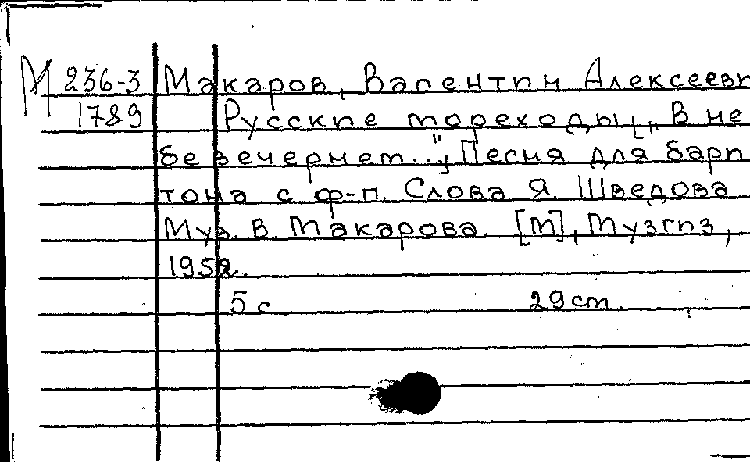 М 236-3 Макаров, Валентин Алексеевич
1789 Русские мореходы[„В не
бе вечернем...", Песня для бари
тона с ф-п. Слова Я. Шведова
Муз. В. Макарова. [М], Музгиз,
1952.
5 с. 29 см.